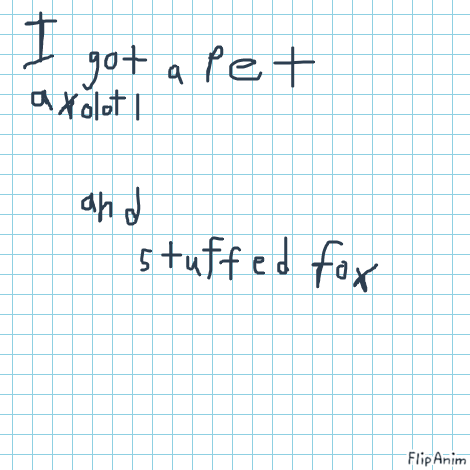 I got a pet
axolotl
and
stuffed fox
FlipAnim